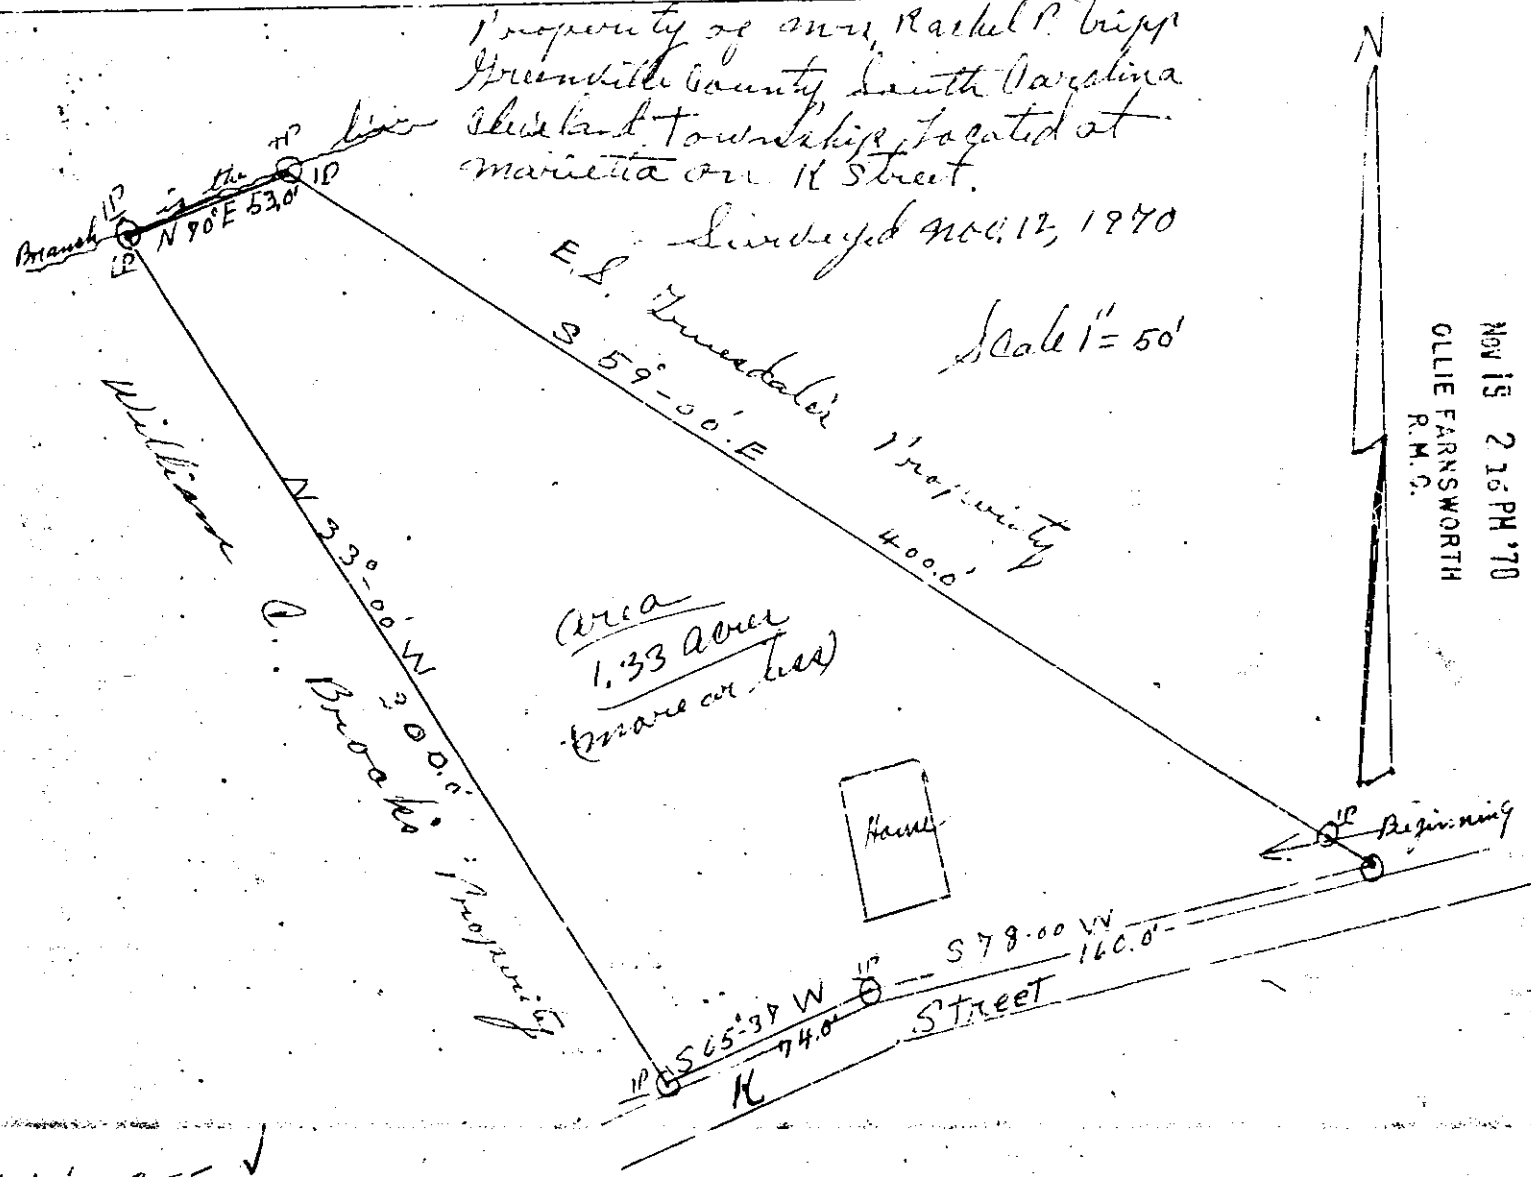 Property of Mrs, Rachel P. Tripp
Greenville County, South Carolina
Cleveland Township, Located at
Marietta on K Street.
Surveyed Nov. 12, 1970
Scale 1" = 50'
N
Nov 18 2 16 PM '70
OLLIE FARNSWORTH
R.M.C.
Branch is the line
IP
IP
IP
N 70° E 53.0'
E.S. Truesdale's Property
S 59°-00' E
400.0'
William C. Brooks Property
N 33°-00' W
300.0'
Area
1.33 Acres
(more or less)
Home
IP
Beginning
S 78-00 W
160.0'
IP
S 65°-37 W
74.0'
IP
K Street